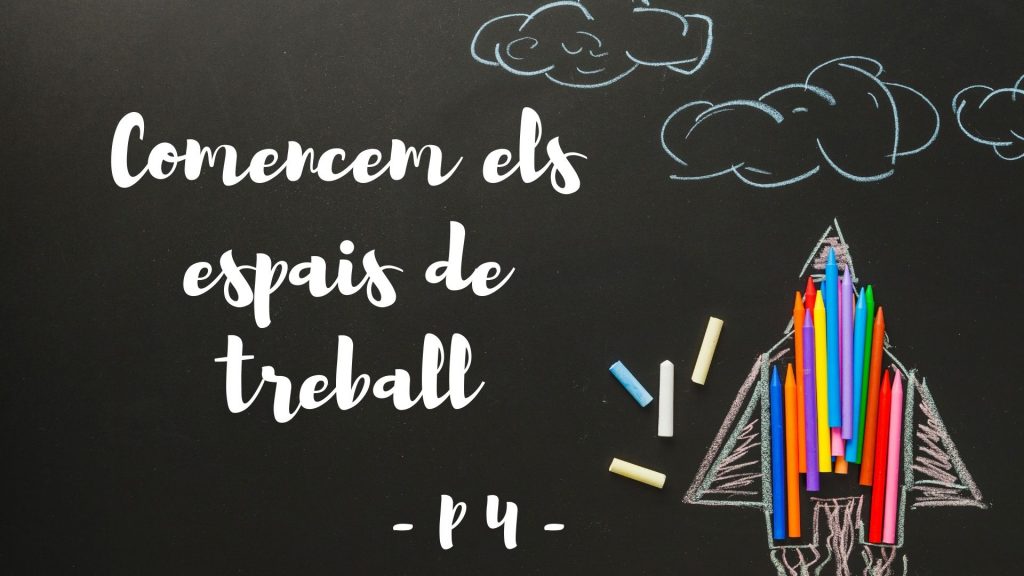 Comencem els
espais de
treball
- P 4 -